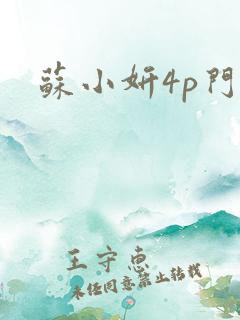 蘇小妍4p門
王守惠
未经同意禁止转载